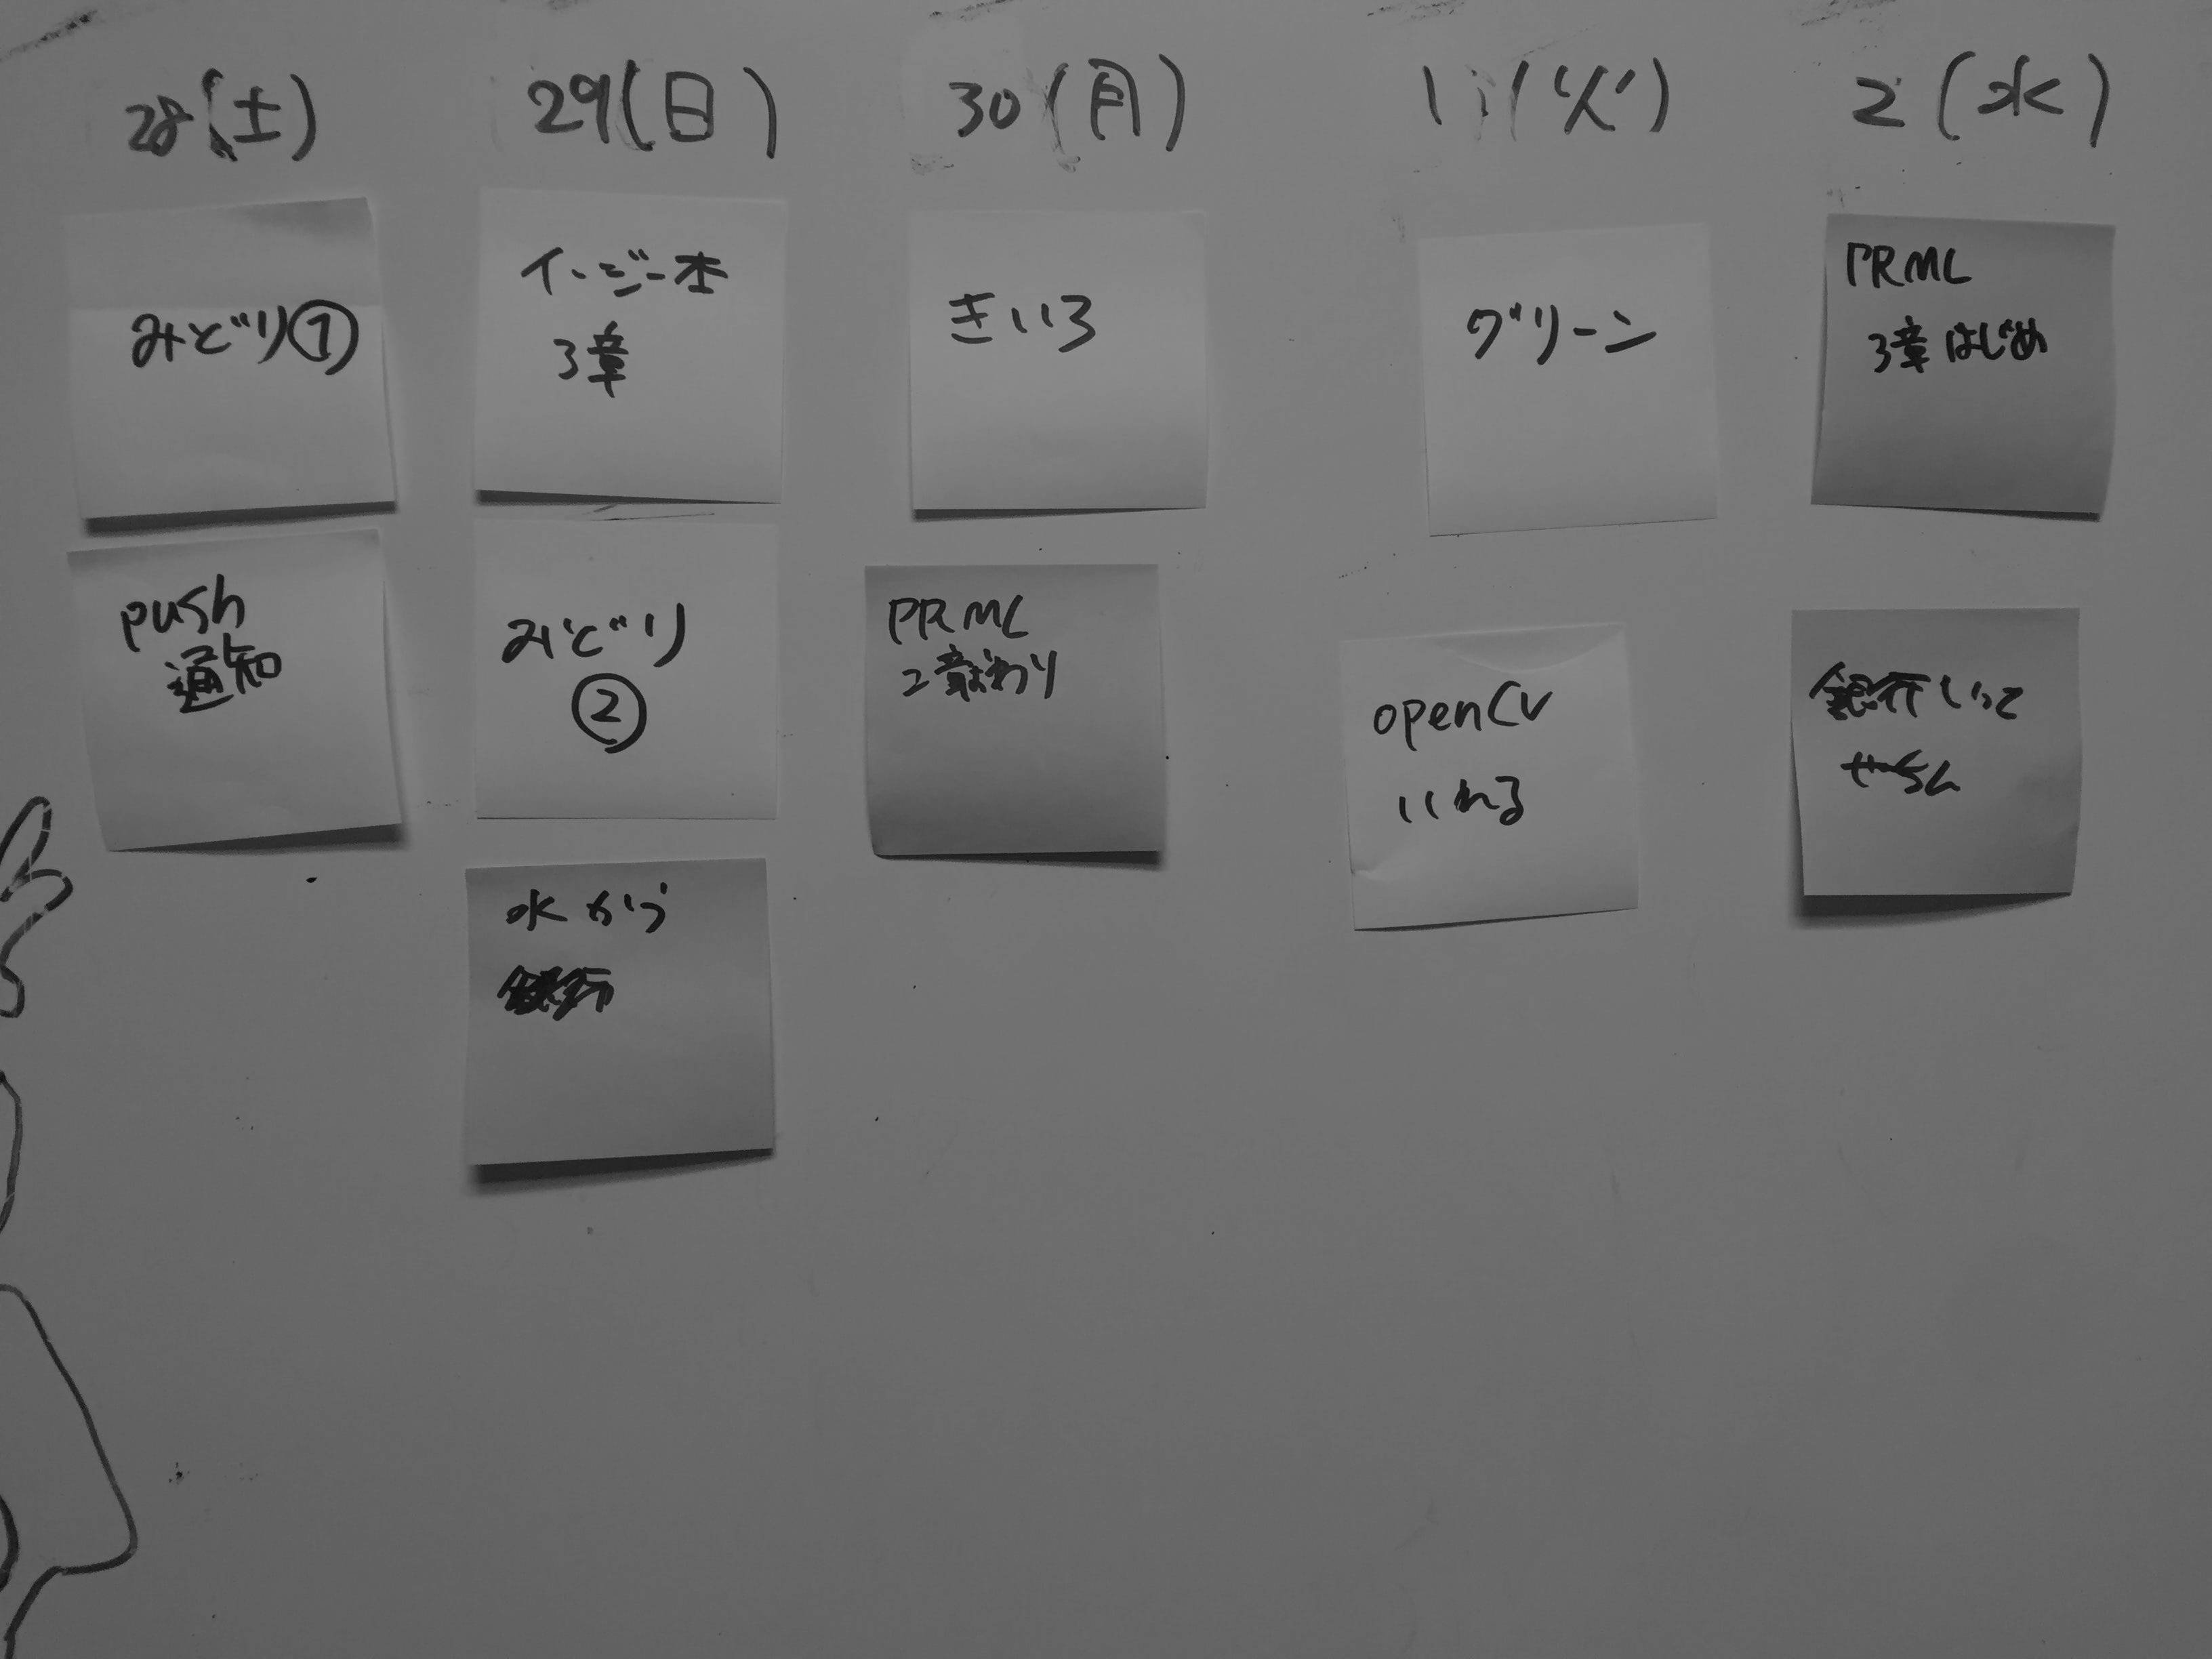 28(土)
みどり①
push
通知
29(日)
イージー本
3章
みどり
②
水から
銀行
30(月)
きいろ
PRML
2章おわり
1(火)
グリーン
openCV
いれる
2(水)
PRML
3章はじめ
銀行いって